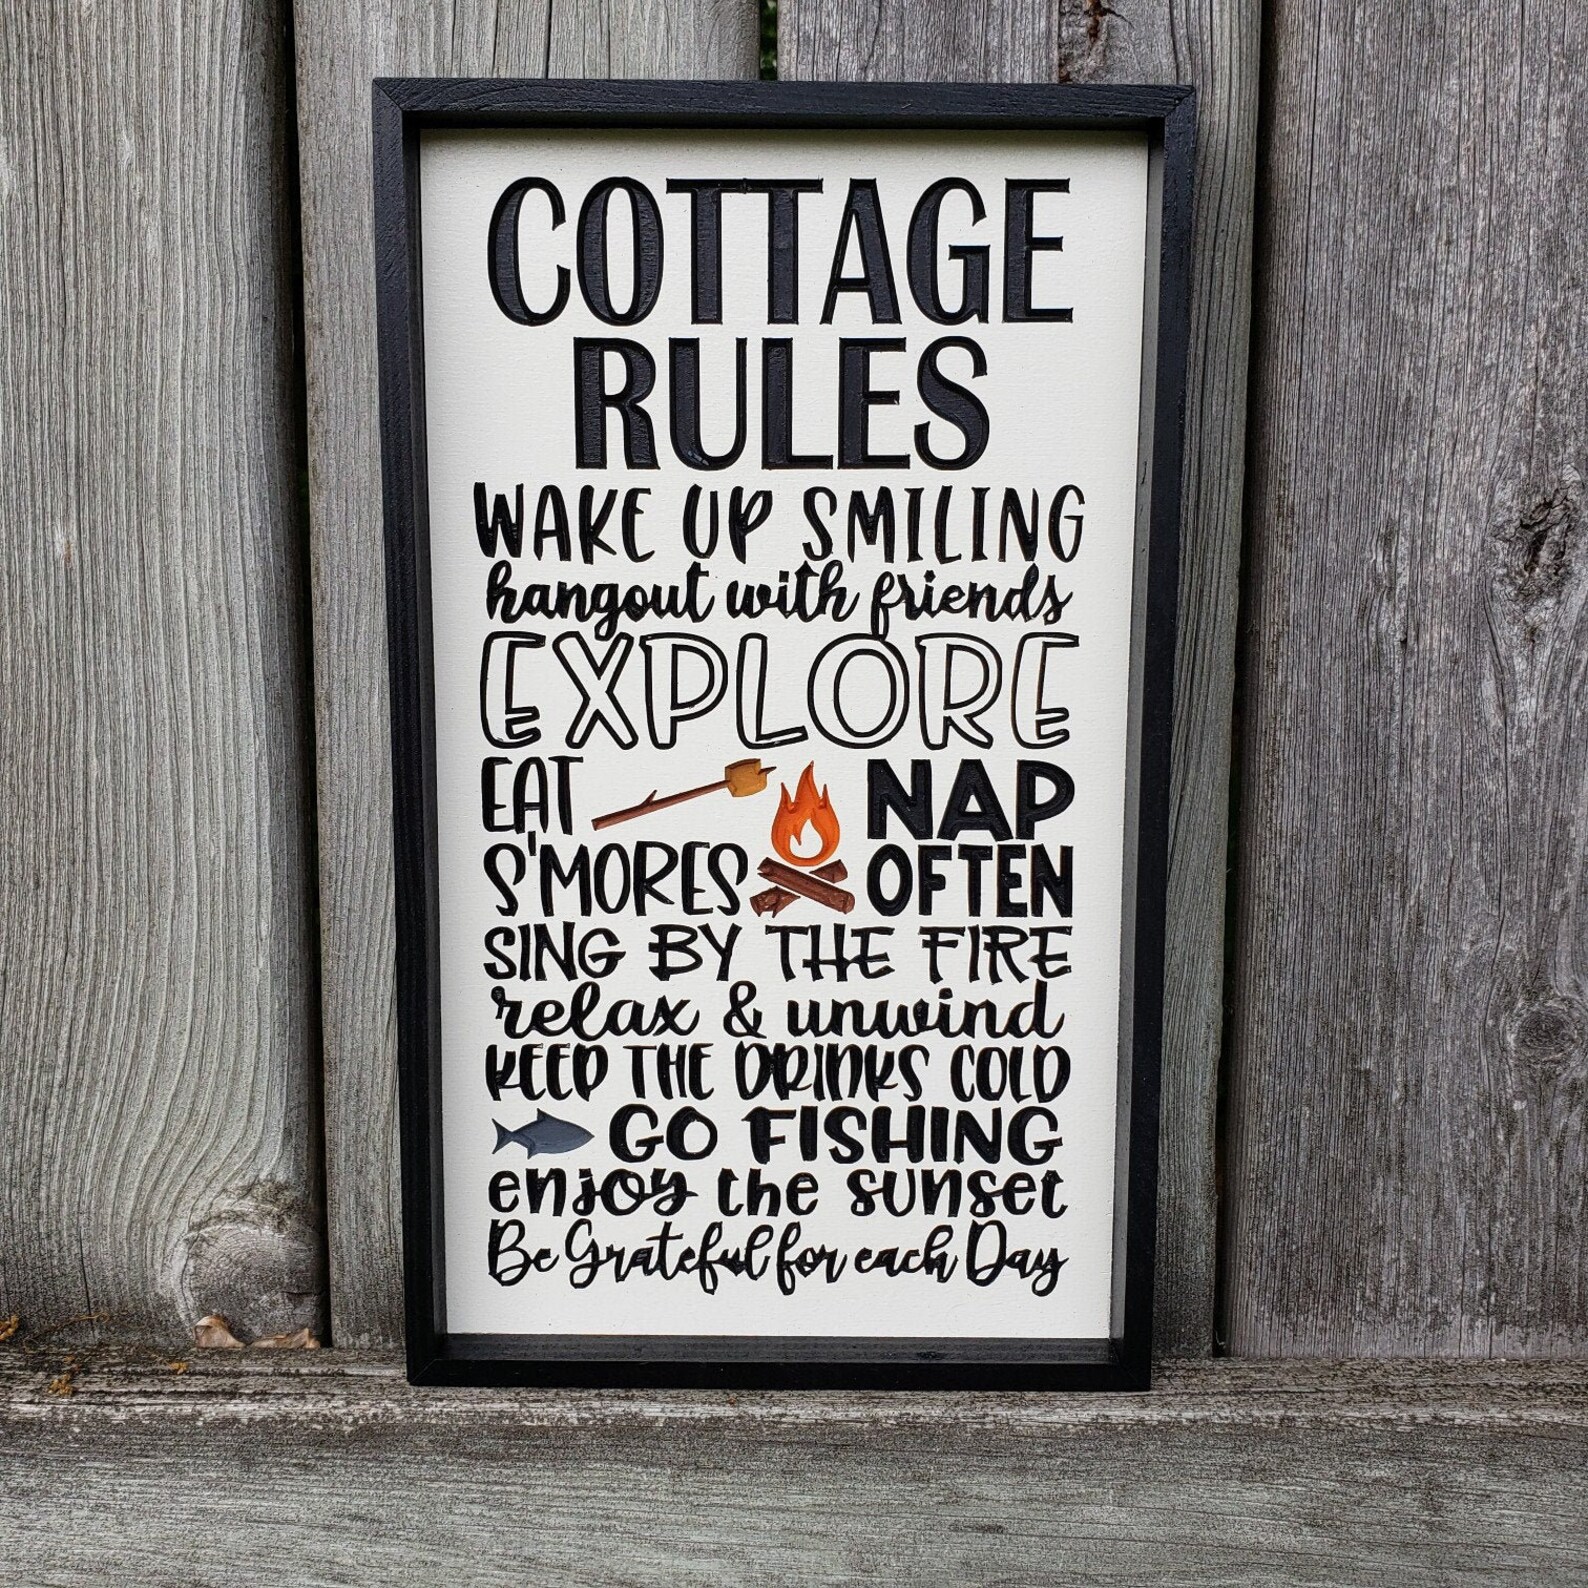 COTTAGE
RULES
WAKE UP SMILING
hangout with friends
EXPLORE
EAT
S'MORES
NAP
OFTEN
SING BY THE FIRE
relax & unwind
KEEP THE DRINKS COLD
GO FISHING
enjoy the sunset
Be Grateful for each Day